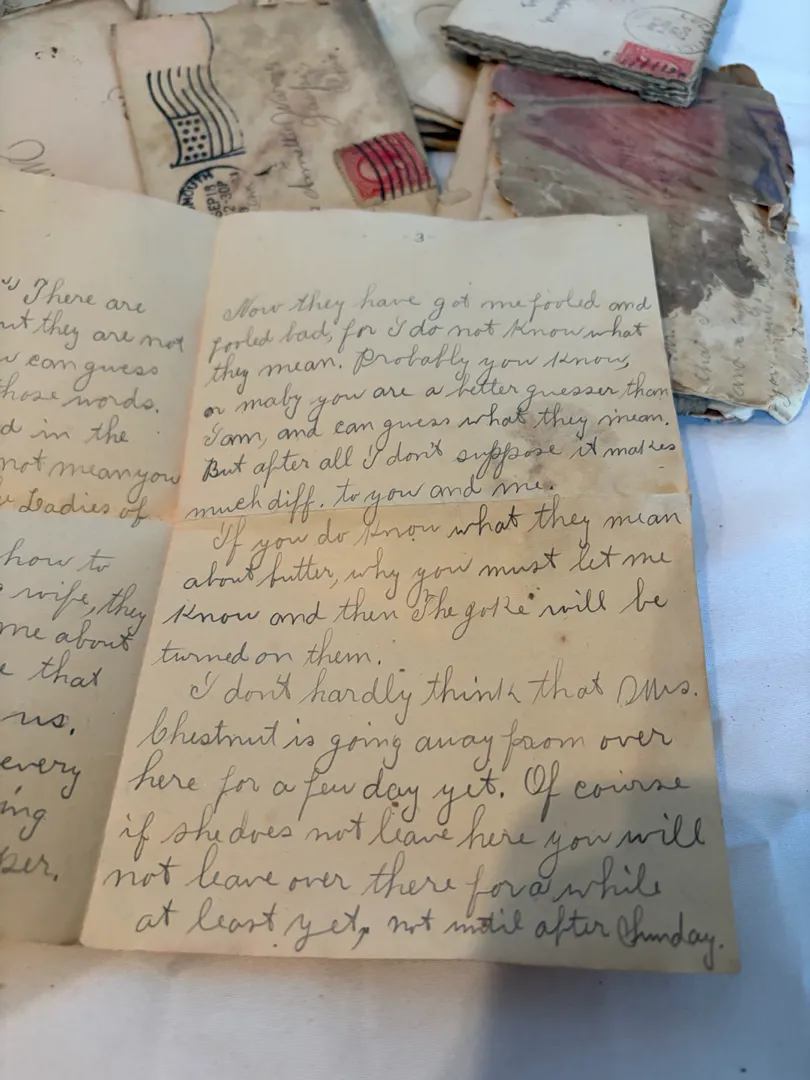 There are
they are not
can guess
those words.
in the
not mean you
Ladies of
how to
wife, they
me about
that
us.
every
- 3 -
Now they have got me fooled and
fooled bad, for I do not know what
they mean. Probably you know,
or maby you are a better guesser than
I am, and can guess what they mean.
But after all I don't suppose it makes
much diff. to you and me.
If you do know what they mean
about butter, why you must let me
know and then The goke will be
turned on them.
I don't hardly think that Mrs.
Chestnut is going away from over
here for a few day yet. Of course
if she does not leave here you will
not leave over there for a while
at least yet, not until after Sunday.